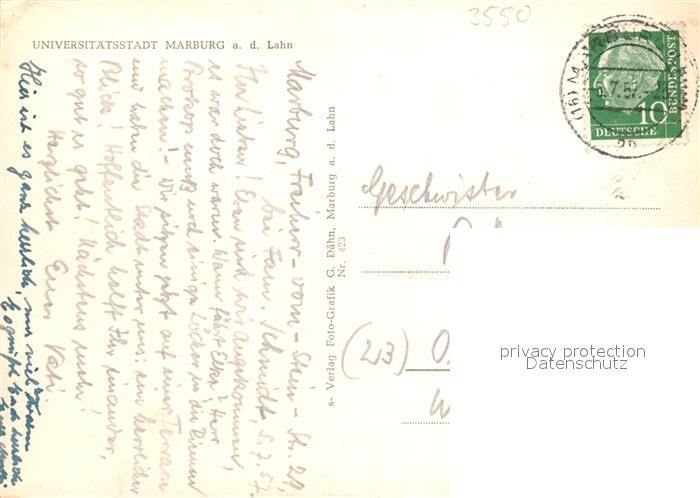 3550
UNIVERSITÄTSSTADT MARBURG a. d. Lahn
Marburg, Freiherr-vom-Stein-Str. 29,
bei Fam. Schmidt, 5.7.57.
Ihr Lieben! Eben sind wir angekommen,
es war doch warm. Wann fährt Herr
muß noch einige Löcher in die Riemen
machen! - Wir sitzen jetzt auf einer Terasse
und haben die Stadt unter uns: ein herrlicher
Blick! Hoffentlich helft Ihr einander,
so gut es geht! Nächstens mehr!
Herzlichst Euer Vati
Hier ist es ganz herrlich, nur viel
s- Verlag Foto-Grafik G. Dähn, Marburg a. d. Lahn
Nr. 423
(16) MARBURG
7.57
DEUTSCHE
BUNDESPOST
10
Geschwister
(23) O
W
privacy protection
Datenschutz